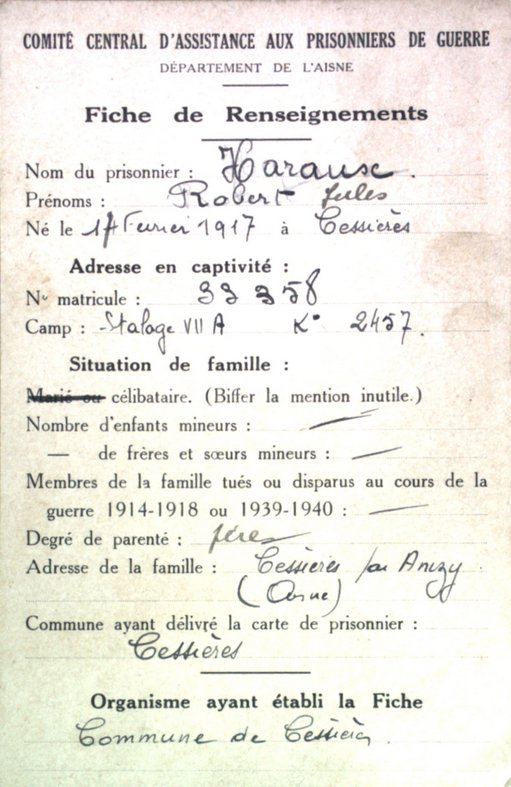 COMITÉ CENTRAL D'ASSISTANCE AUX PRISONNIERS DE GUERRE
DÉPARTEMENT DE L'AISNE
Fiche de Renseignements
Nom du prisonnier : Harause.
Prénoms : Robert Jules
Né le 17 Février 1917 à Cessières
Adresse en captivité :
No matricule : 33 358
Camp : Stalage VII A K° 2457.
Situation de famille :
Marié ou célibataire. (Biffer la mention inutile.)
Nombre d'enfants mineurs : —
— de frères et sœurs mineurs : —
Membres de la famille tués ou disparus au cours de la
guerre 1914-1918 ou 1939-1940 : —
Degré de parenté :
Adresse de la famille : Cessières par Anizy
(Aisne)
Commune ayant délivré la carte de prisonnier :
Cessières
Organisme ayant établi la Fiche
Commune de Cessières.